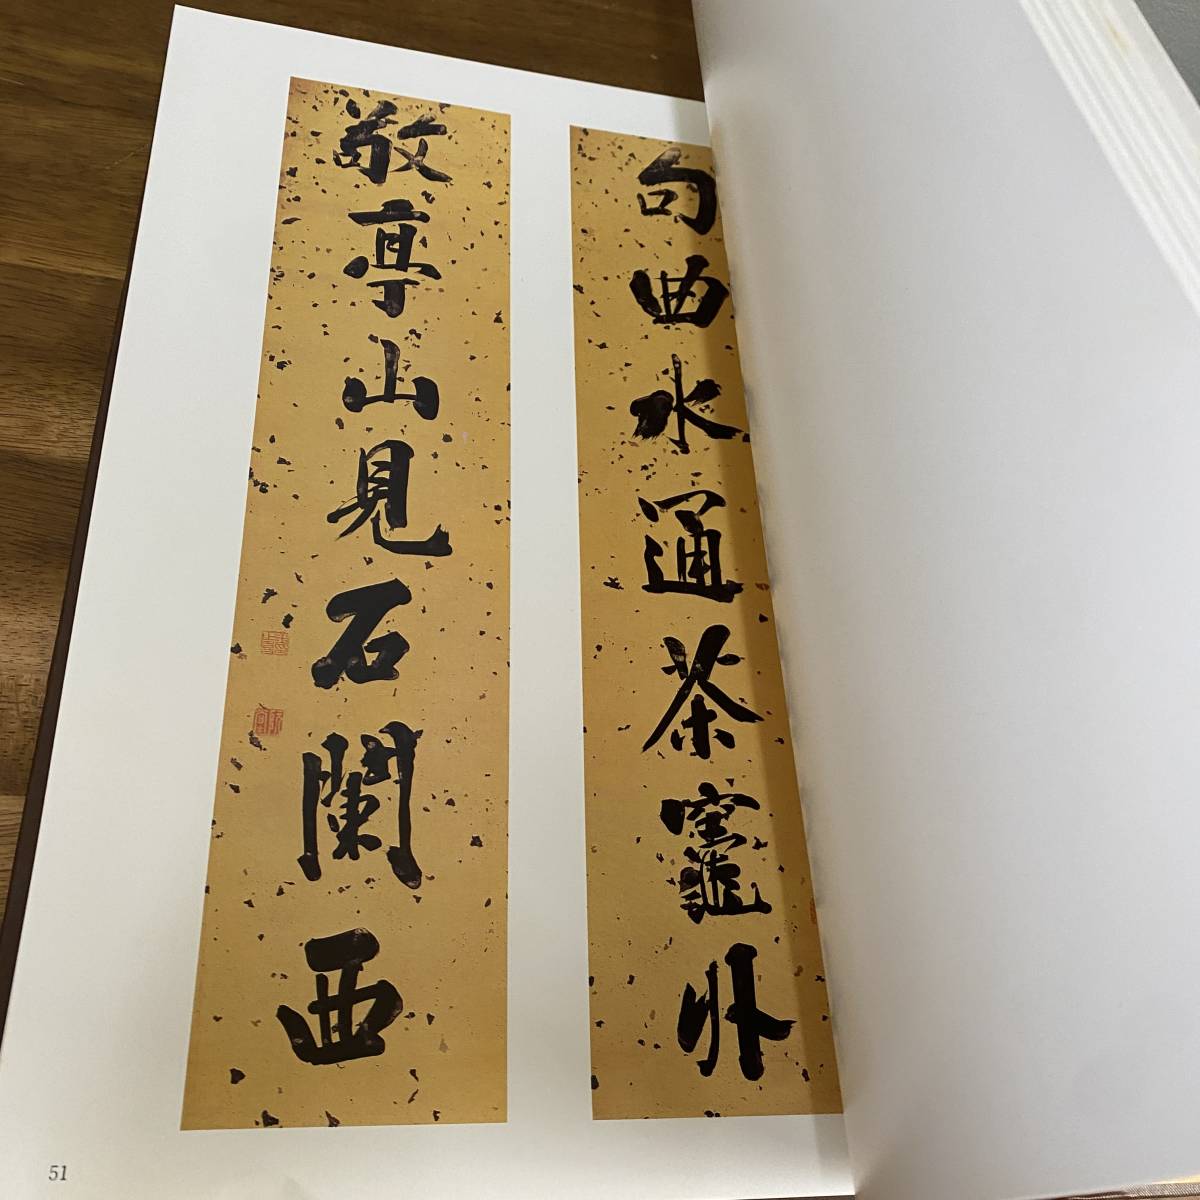 句曲水通茶竈外
敬亭山見石闌西
51